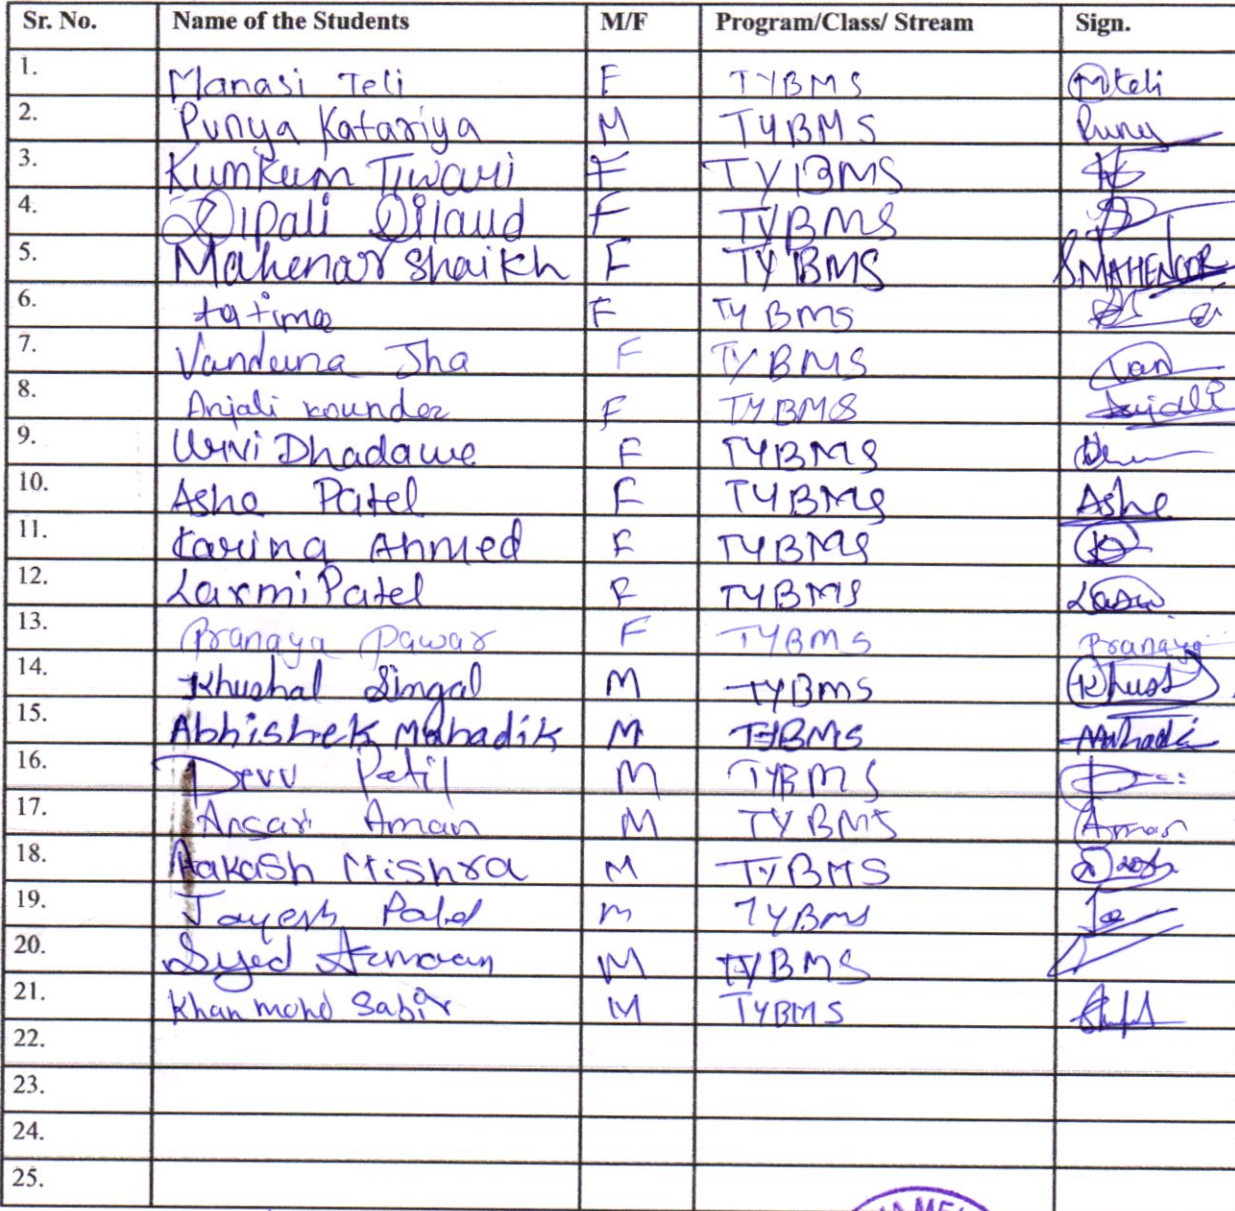 Sr. No. Name of the Students M/F Program/Class/ Stream Sign.
1. Manasi Teli F TYBMS Mteli
2. Punya Katariya M TYBMS Puny
3. Kumkum Tiwari F TYBMS
4. Dipali F TYBMS
5. Mahenoor Shaikh F TYBMS S.MAHENOOR
6. fatima F TYBMS
7. Vandana Jha F TYBMS Van
8. Anjali kounder F TYBMS Anjali
9. Urvi Dhadawe F TYBMS
10. Asha Patel F TYBMS Asha
11. Karina Ahmed F TYBMS
12. Laxmi Patel F TYBMS
13. Pranaya Pawar F TYBMS Pranaya
14. Khushal Singal M TYBMS
15. Abhishek Mahadik M TYBMS
16. Patil M TYBMS
17. Ansari Aman M TYBMS Aman
18. Aakash Mishra M TYBMS
19. Jayesh Patel M TYBMS
20. Syed Armaan M TYBMS
21. Khan mohd Sabir M TYBMS
22.
23.
24.
25.